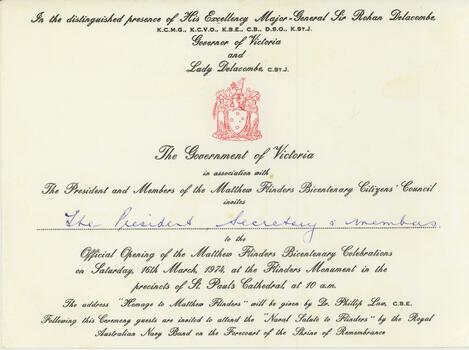 In the distinguished presence of His Excellency Major-General Sir Rohan Delacombe,
K.C.M.G., K.C.V.O., K.B.E., C.B., D.S.O., K.ST.J.
Governor of Victoria
and
Lady Delacombe, C.ST.J.
The Government of Victoria
in association with
The President and Members of the Matthew Flinders Bicentenary Citizens' Council
invites
The President, Secretary & members.
to the
Official Opening of the Matthew Flinders Bicentenary Celebrations
on Saturday, 16th March, 1974, at the Flinders Monument in the
precincts of St. Paul's Cathedral, at 10 a.m.
The address "Homage to Matthew Flinders" will be given by Dr. Phillip Law, C.B.E.
Following this Ceremony guests are invited to attend the "Naval Salute to Flinders" by the Royal
Australian Navy Band on the Forecourt of the Shrine of Remembrance